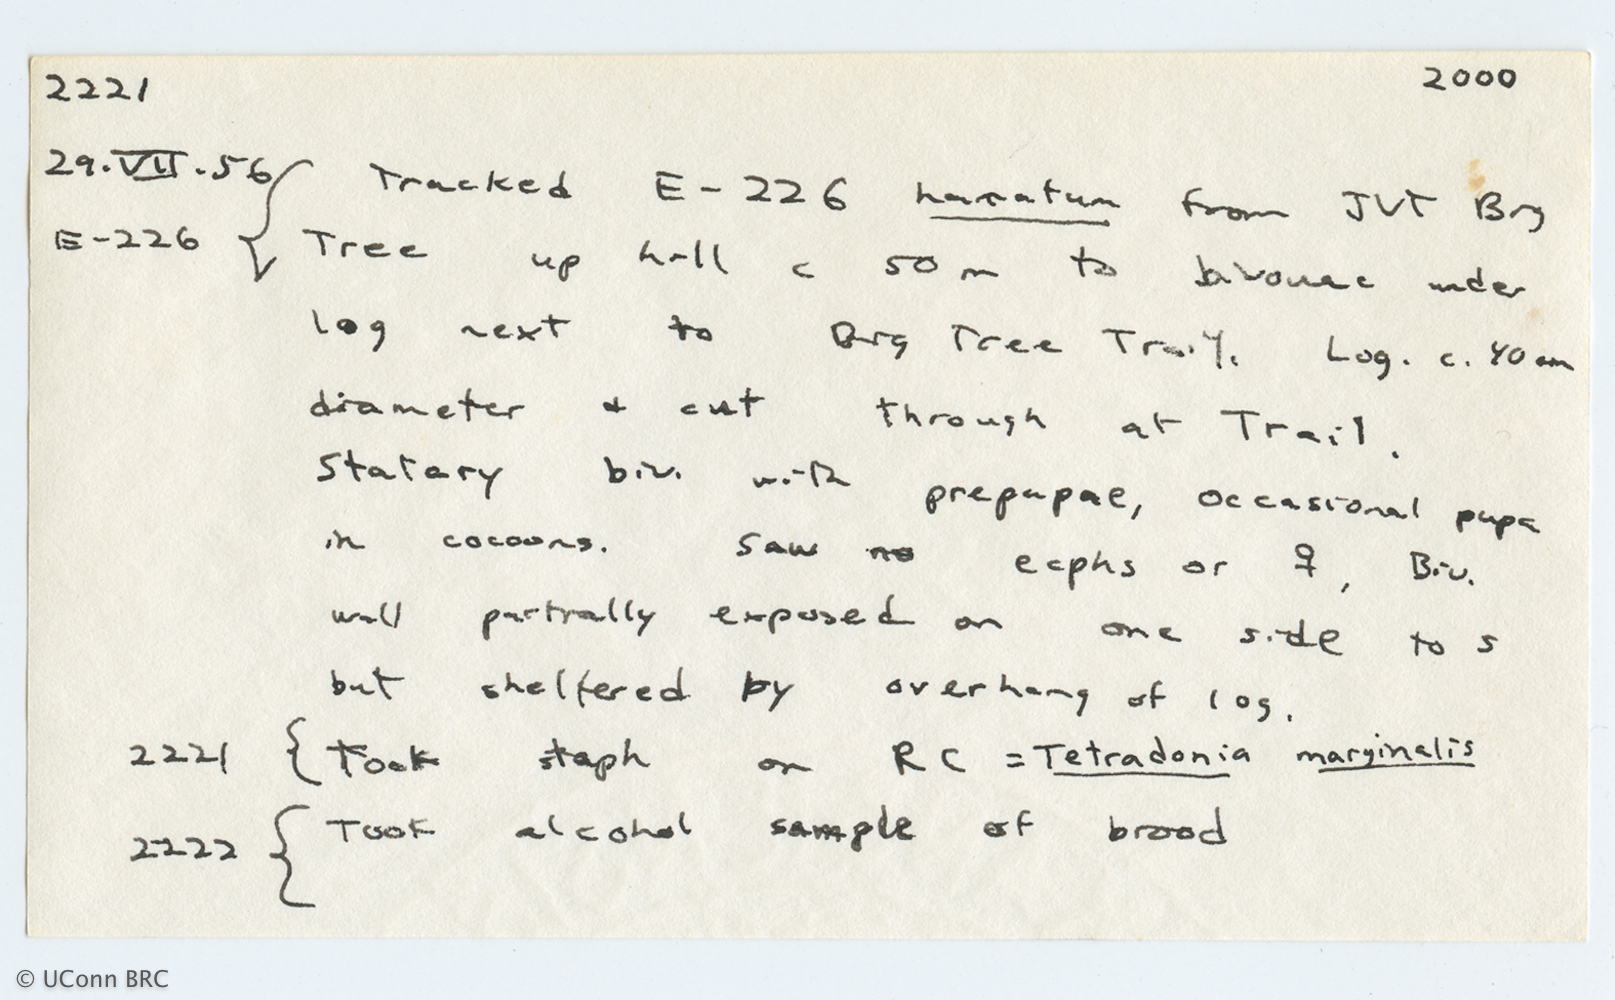 2221 2000
29.VII.56 Tracked E-226 hamatum from JVT Big
E-226 Tree up hill c 50 m to bivouac under
log next to Big Tree Trail. Log. c. 40 cm
diameter & cut through at Trail.
Statary biv. with prepupae, occasional pupa
in cocoons. Saw no ecphs or ♀, Biv.
wall partially exposed on one side to s
but sheltered by overhang of log.
2221 Took staph on RC = Tetradonia marginalis
2222 Took alcohol sample of brood
© UConn BRC